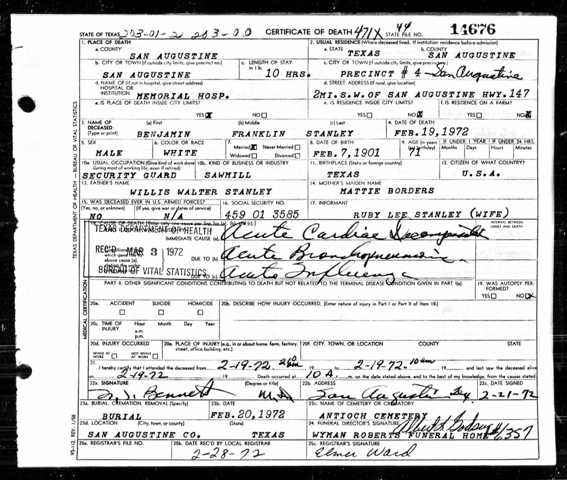 STATE OF TEXAS 203-01-2 203-00 CERTIFICATE OF DEATH 471X 44 STATE FILE NO. 14676
1. PLACE OF DEATH 2. USUAL RESIDENCE (Where deceased lived. If institution: residence before admission)
a. COUNTY SAN AUGUSTINE a. STATE TEXAS b. COUNTY SAN AUGUSTINE
b. CITY OR TOWN (If outside city limits, give precinct no.) c. LENGTH OF STAY c. CITY OR TOWN (If outside city limits, give precinct no.)
SAN AUGUSTINE 10 HRS. PRECINCT # 4 - San Augustine
d. NAME OF (If not in hospital, give street address) d. STREET ADDRESS (If rural, give location)
HOSPITAL OR INSTITUTION MEMORIAL HOSP. 2MI.S.W.OF SAN AUGUSTINE HWY.147
e. IS PLACE OF DEATH INSIDE CITY LIMITS? YES NO e. IS RESIDENCE INSIDE CITY LIMITS? YES NO f. IS RESIDENCE ON A FARM? YES NO
3. NAME OF DECEASED (Type or print) (a) First (b) Middle (c) Last 4. DATE OF DEATH
BENJAMIN FRANKLIN STANLEY FEB.19,1972
5. SEX 6. COLOR OR RACE 7. Married Never Married Widowed Divorced 8. DATE OF BIRTH 9. AGE (In years last birthday) IF UNDER 1 YEAR IF UNDER 24 HRS.
MALE WHITE FEB.7,1901 71 Months Days Hours Min.
10a. USUAL OCCUPATION (Give kind of work done during most of working life, even if retired) 10b. KIND OF BUSINESS OR INDUSTRY 11. BIRTHPLACE (State or foreign country) 12. CITIZEN OF WHAT COUNTRY?
SECURITY GUARD SAWMILL TEXAS U.S.A.
13. FATHER'S NAME 14. MOTHER'S MAIDEN NAME
WILLIS WALTER STANLEY MATTIE BORDERS
15. WAS DECEASED EVER IN U.S. ARMED FORCES? 16. SOCIAL SECURITY NO. 17. INFORMANT
(Yes, no, or unknown) (If yes, give war or dates of service)
NO N/A 459 01 3585 RUBY LEE STANLEY (WIFE)
TEXAS DEPARTMENT OF HEALTH IMMEDIATE CAUSE (a) Acute Cardiac
REC'D MAR 3 1972 DUE TO (b) Acute Bronchopneumonia
BUREAU OF VITAL STATISTICS DUE TO (c) Acute Influenza
PART II. OTHER SIGNIFICANT CONDITIONS CONTRIBUTING TO DEATH BUT NOT RELATED TO THE TERMINAL DISEASE CONDITION GIVEN IN PART I(a) 19. WAS AUTOPSY PERFORMED?
YES NO
20a. ACCIDENT SUICIDE HOMICIDE 20b. DESCRIBE HOW INJURY OCCURRED. (Enter nature of injury in Part I or Part II of item 18)
20c. TIME OF INJURY Hour Month Day Year
a.m.
p.m.
20d. INJURY OCCURRED 20e. PLACE OF INJURY (e.g., in or about home, farm, factory, street, office building, etc.) 20f. CITY, TOWN, OR LOCATION COUNTY STATE
WHILE AT WORK NOT WHILE AT WORK
21. I hereby certify that I attended the deceased from 2-19-72 to 2-19-72 10am and last saw the deceased alive
on 2-19-72. Death occurred at 10 A. m. on the date stated above, and to the best of my knowledge, from the causes stated.
22a. SIGNATURE (Degree or title) 22b. ADDRESS 22c. DATE SIGNED
Bennett M.D. San Augustine Tex 2-21-72
23a. BURIAL, CREMATION, REMOVAL (Specify) 23b. DATE 23c. NAME OF CEMETERY OR CREMATORY
BURIAL FEB.20,1972 ANTIOCH CEMETERY
23d. LOCATION (City, town, or county) (State) 24. FUNERAL DIRECTOR'S SIGNATURE
SAN AUGUSTINE CO. TEXAS WYMAN ROBERTS FUNERAL HOME #6357
25a. REGISTRAR'S FILE NO. 25b. DATE REC'D BY LOCAL REGISTRAR 25c. REGISTRAR'S SIGNATURE
2-28-72 Elmer Ward
TEXAS DEPARTMENT OF HEALTH — BUREAU OF VITAL STATISTICS
MEDICAL CERTIFICATION
VS-112 REV. 1/58